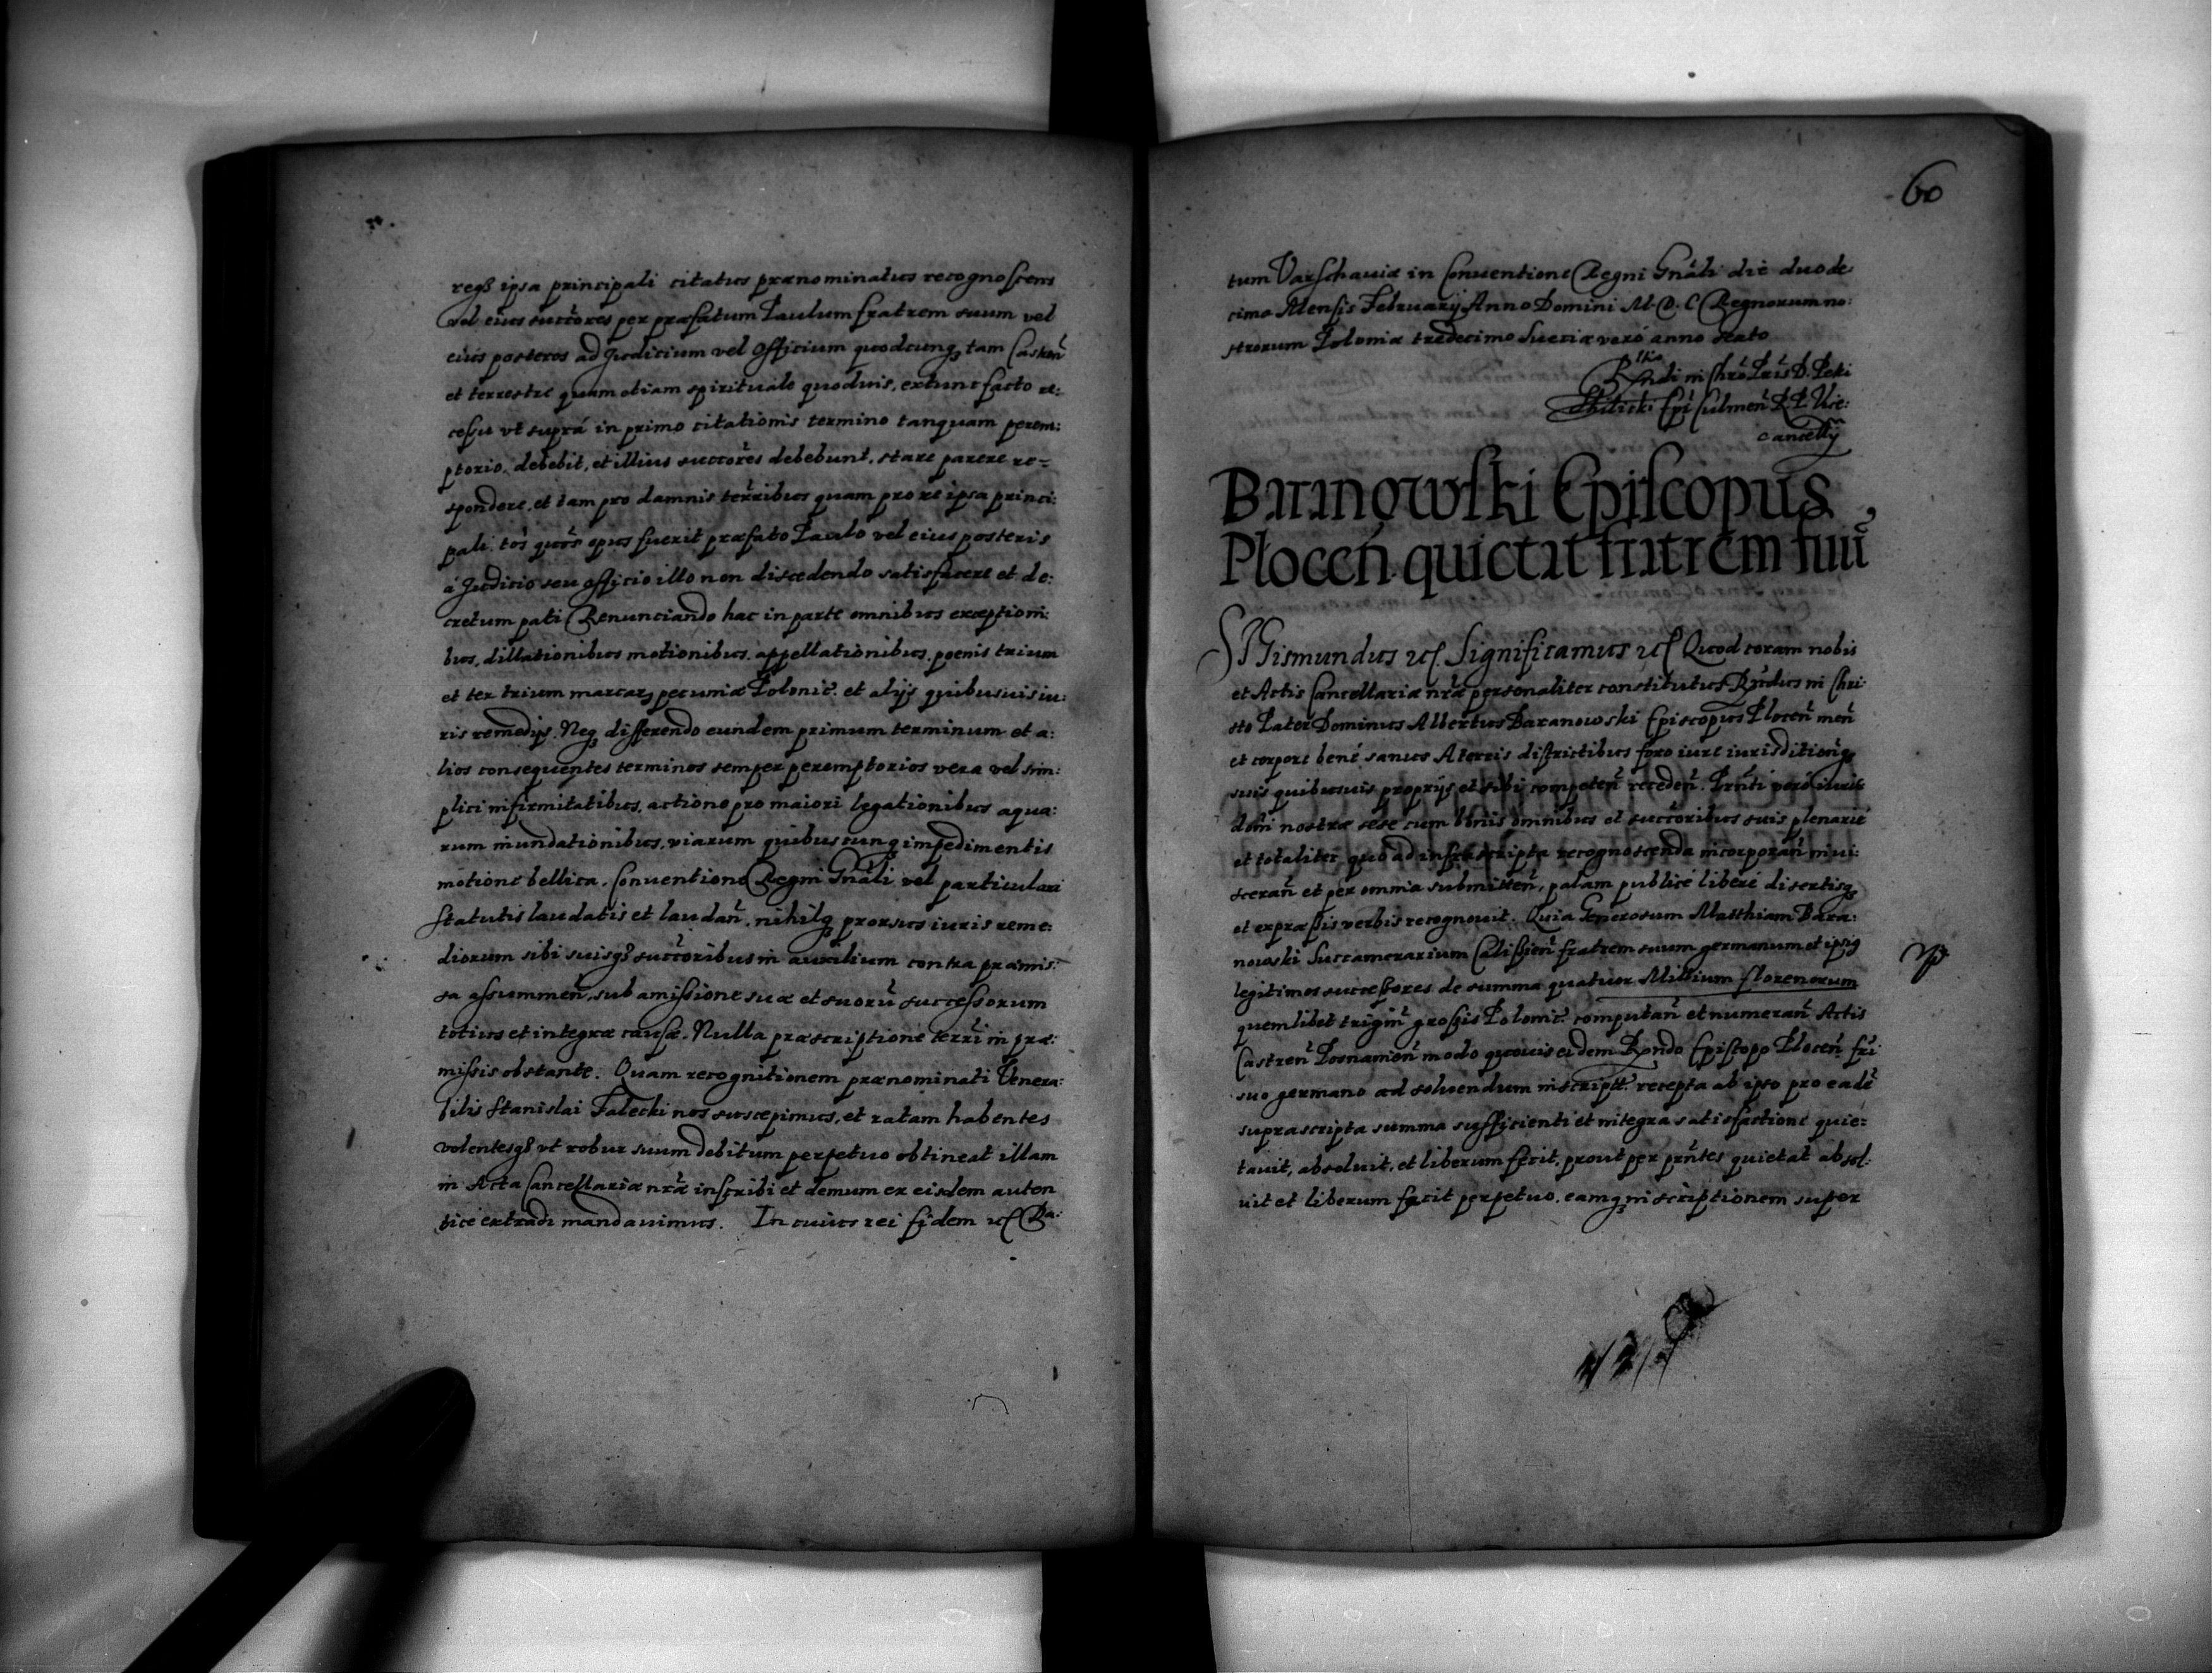 reqȝ ipsa principali citatus prænominatus recognoscens
vel eius succr̃ores per præfatum Paulum fratrem suum vel
eius posteros ad Judicium vel Officium quodcunqȝ tam Castren̄
et terrestre quam etiam spirituale quoduis, extunc facto re:
cessu vt suprà in primo citationis termino tanquam perem:
ptorio, debebit, et illius succores debebunt, stare parere re=
spondere, et tam pro damnis terribus quam pro re ipsa princi:
pali. tos quos opus fuerit præfato Paulo vel eius posteris
à Judicio seu officio illo non discedendo satisfacere et de:
cretum pati Renunciando hac in parte omnibus exceptioni:
bus, dillationibus motionibus, appellationibus, poenis trium
et ter trium marcarȝ pecuniæ Polonic̃. et alijs quibusuis iu:
ris remedijs. Neqȝ differendo eundem primum terminum et a:
lios consequentes terminos semper peremptorios vera vel sim:
plici infirmitatibus, actione pro maiori legationibus aqua:
rum inundationibus, viarum quibuscunq impedimentis
motione bellica, Conuentione Regni Gnãli vel particulari
statutis laudatis et laudan̄, nihilqȝ prorsus iuris reme:
diorum sibi suisqȝ succoribus in auxilium contra præmis:
sa assummen̄, sub amissione suæ et suorū successorum
totius et integræ causæ. Nulla præscriptione terri in præ:
missis obstante. Quam recognitionem prænominati Venera:
bilis Stanislai Falecki nos suscepimus, et ratam habentes
volentesqȝ vt robur suum debitum perpetuo obtineat illam
in Acta Cancellariæ nræ inscribi et demum ex eisdem auten
tice extradi mandauimus. In cuius rei fidem etc Da:
60
tum Varschauiæ in Conuentione Regni Gnãli die duode:
cima Mensis Februarij Anno Domini M. D. C Regnorum no:
strorum Poloniæ tredecimo Sueciæ verò anno sexto
Rltio
Rndi in Chrõ Pris D. Petri
Tÿlicki Epĩ Culmen̄ R. P. Vice:
cancellÿ
Baranowski Episcopus
Plocen̄. quietat fratrem suū
SIGismundus etc. Significamus etc Quod coram nobis
et Actis Cancellariæ nræ personaliter constitutus Rrndus in Chri:
sto Pater Dominus Albertus Baranowski Episcopus Plocen̄ men̄
et corpore benè sanus A terris districtibus foro iure iurisditioneqȝ
suis quibusuis proprijs et sibi competen̄ receden̄. Prñti verò iuris
dōni nostræ sese cum bonis omnibus et succoribus suis plenariè
et totaliter, quo ad infrascripta recognoscenda incorporan̄ inui:
sceran̄ et per omnia submitten̄, palam publicè liberè disertisqȝ
et expræssis verbis recognouit. Quia Generosum Matthiam Bara:
nowski Succamerarium Calissien̄ fratrem suum germanum et ipsiꝯ
legitimos successores de summa quatuor Millium florenorum
quemlibet trigin̄ grossis Polonic̃. computan̄ et numeran̄ Actis
Castren̄ Posnanien̄ modo quouis eidem Rndo Episcopo Plocen̄ fri
suo germano ad soluendum inscriptt. recepta ab ipso pro eadē
suprascripta summa sufficienti et integra satisfactione quie=
tauit, absoluit, et liberum fecit, prout per prñtes quietat absol:
uit et liberum facit perpetuo, eamqȝ inscriptionem super